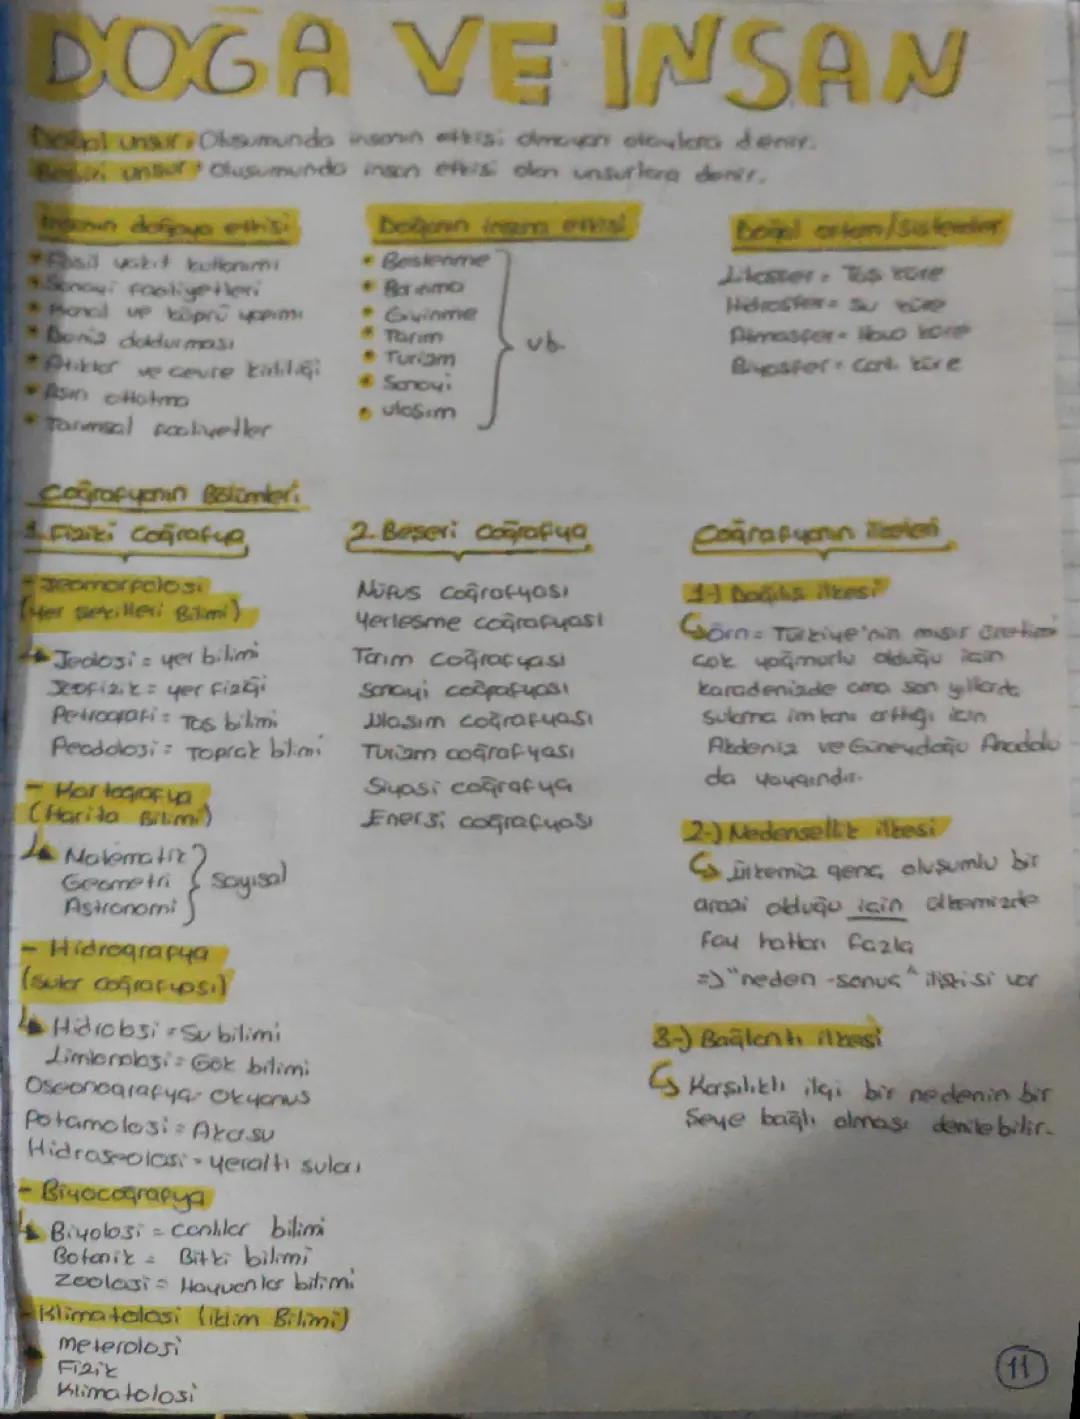 DOĞA VE İNSAN
Doğal unsur: Oluşumunda insanın etkisi olmayan olaylara denir.
Beşeri unsur: Oluşumunda insan etkisi olan unsurlara denir.
İnsanın doğaya etkisi
• Fosil yakıt kullanımı
• Sanayi faaliyetleri
• Kanal ve köprü yapımı
• Deniz doldurması
• Atıklar ve çevre kirliliği
• Aşırı otlatma
• Tarımsal faaliyetler
Doğanın insana etkisi
• Beslenme
• Barınma
• Giyinme
• Tarım
• Turizm
• Sanayi
• ulaşım
vb.
Doğal ortam/Sistemler
Litosfer = Taş küre
Hidrosfer = Su küre
Atmosfer = Hava küre
Biyosfer = Canlı küre
Coğrafyanın Bölümleri
1. Fiziki Coğrafya
- Jeomorfoloji
(Yer Şekilleri Bilimi)
Jeoloji = yer bilimi
Jeofizik = yer fiziği
Petrografi = Taş bilimi
Peodoloji = Toprak bilimi
- Kartografya
(Harita Bilimi)
Matematik
Geometri
Astronomi
Sayısal
- Hidrografya
(Sular Coğrafyası)
Hidroloji = Su bilimi
Limlonoloji = Göl bilimi
Oseonografya = Okyanus
Potamoloji = Akarsu
Hidrojeoloji = yeraltı suları
- Biyocoğrafya
Biyoloji = canlılar bilimi
Botanik = Bitki bilimi
Zooloji = Hayvanlar bilimi
- Klimatoloji (İklim Bilimi)
Meteroloji
Fizik
Klimatoloji
2. Beşeri Coğrafya
Nüfus coğrafyası
Yerleşme coğrafyası
Tarım Coğrafyası
Sanayi coğrafyası
Ulaşım coğrafyası
Turizm coğrafyası
Siyasi coğrafya
Enerji coğrafyası
Coğrafyanın İlkeleri
1-) Dağılış ilkesi
Örn = Türkiye'nin mısır üretimi
çok yağmurlu olduğu için
karadenizde ama son yıllarda
sulama imkanı arttığı için
Akdeniz ve Güneydoğu Anadolu
da yaygındır.
2-) Nedensellik ilkesi
ülkemiz genç oluşumlu bir
arazi olduğu için ülkemizde
fay hatları fazla
=> "neden-sonuç" ilişkisi var
3-) Bağlantı ilkesi
Karşılıklı ilgi bir nedenin bir
şeye bağlı olması denilebilir.
11